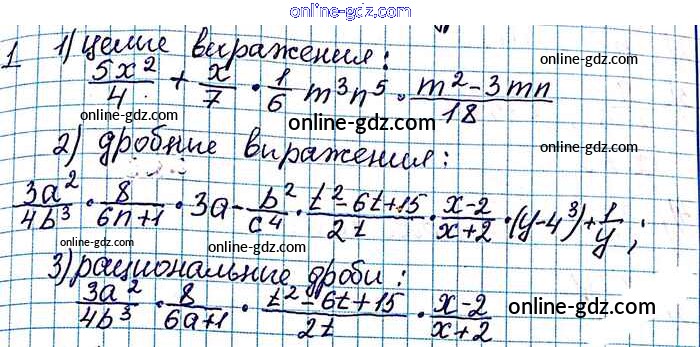 online-gdz.com
1 1) целые выражения:
5x²/4 + x/7 · 1/6 m³n⁵ · (m²-3mn)/18
online-gdz.com
online-gdz.com
online-gdz.com
2) дробные выражения:
3a²/4b³ · 8/(6n+1) · 3a - b²/c⁴ · (t²-6t+15)/2t · (x-2)/(x+2) · (y-4³) + 1/y;
online-gdz.com
online-gdz.com
3) рациональные дроби:
3a²/4b³ · 8/(6a+1) · (t²-6t+15)/2t · (x-2)/(x+2)
online-gdz.com
online-gdz.com